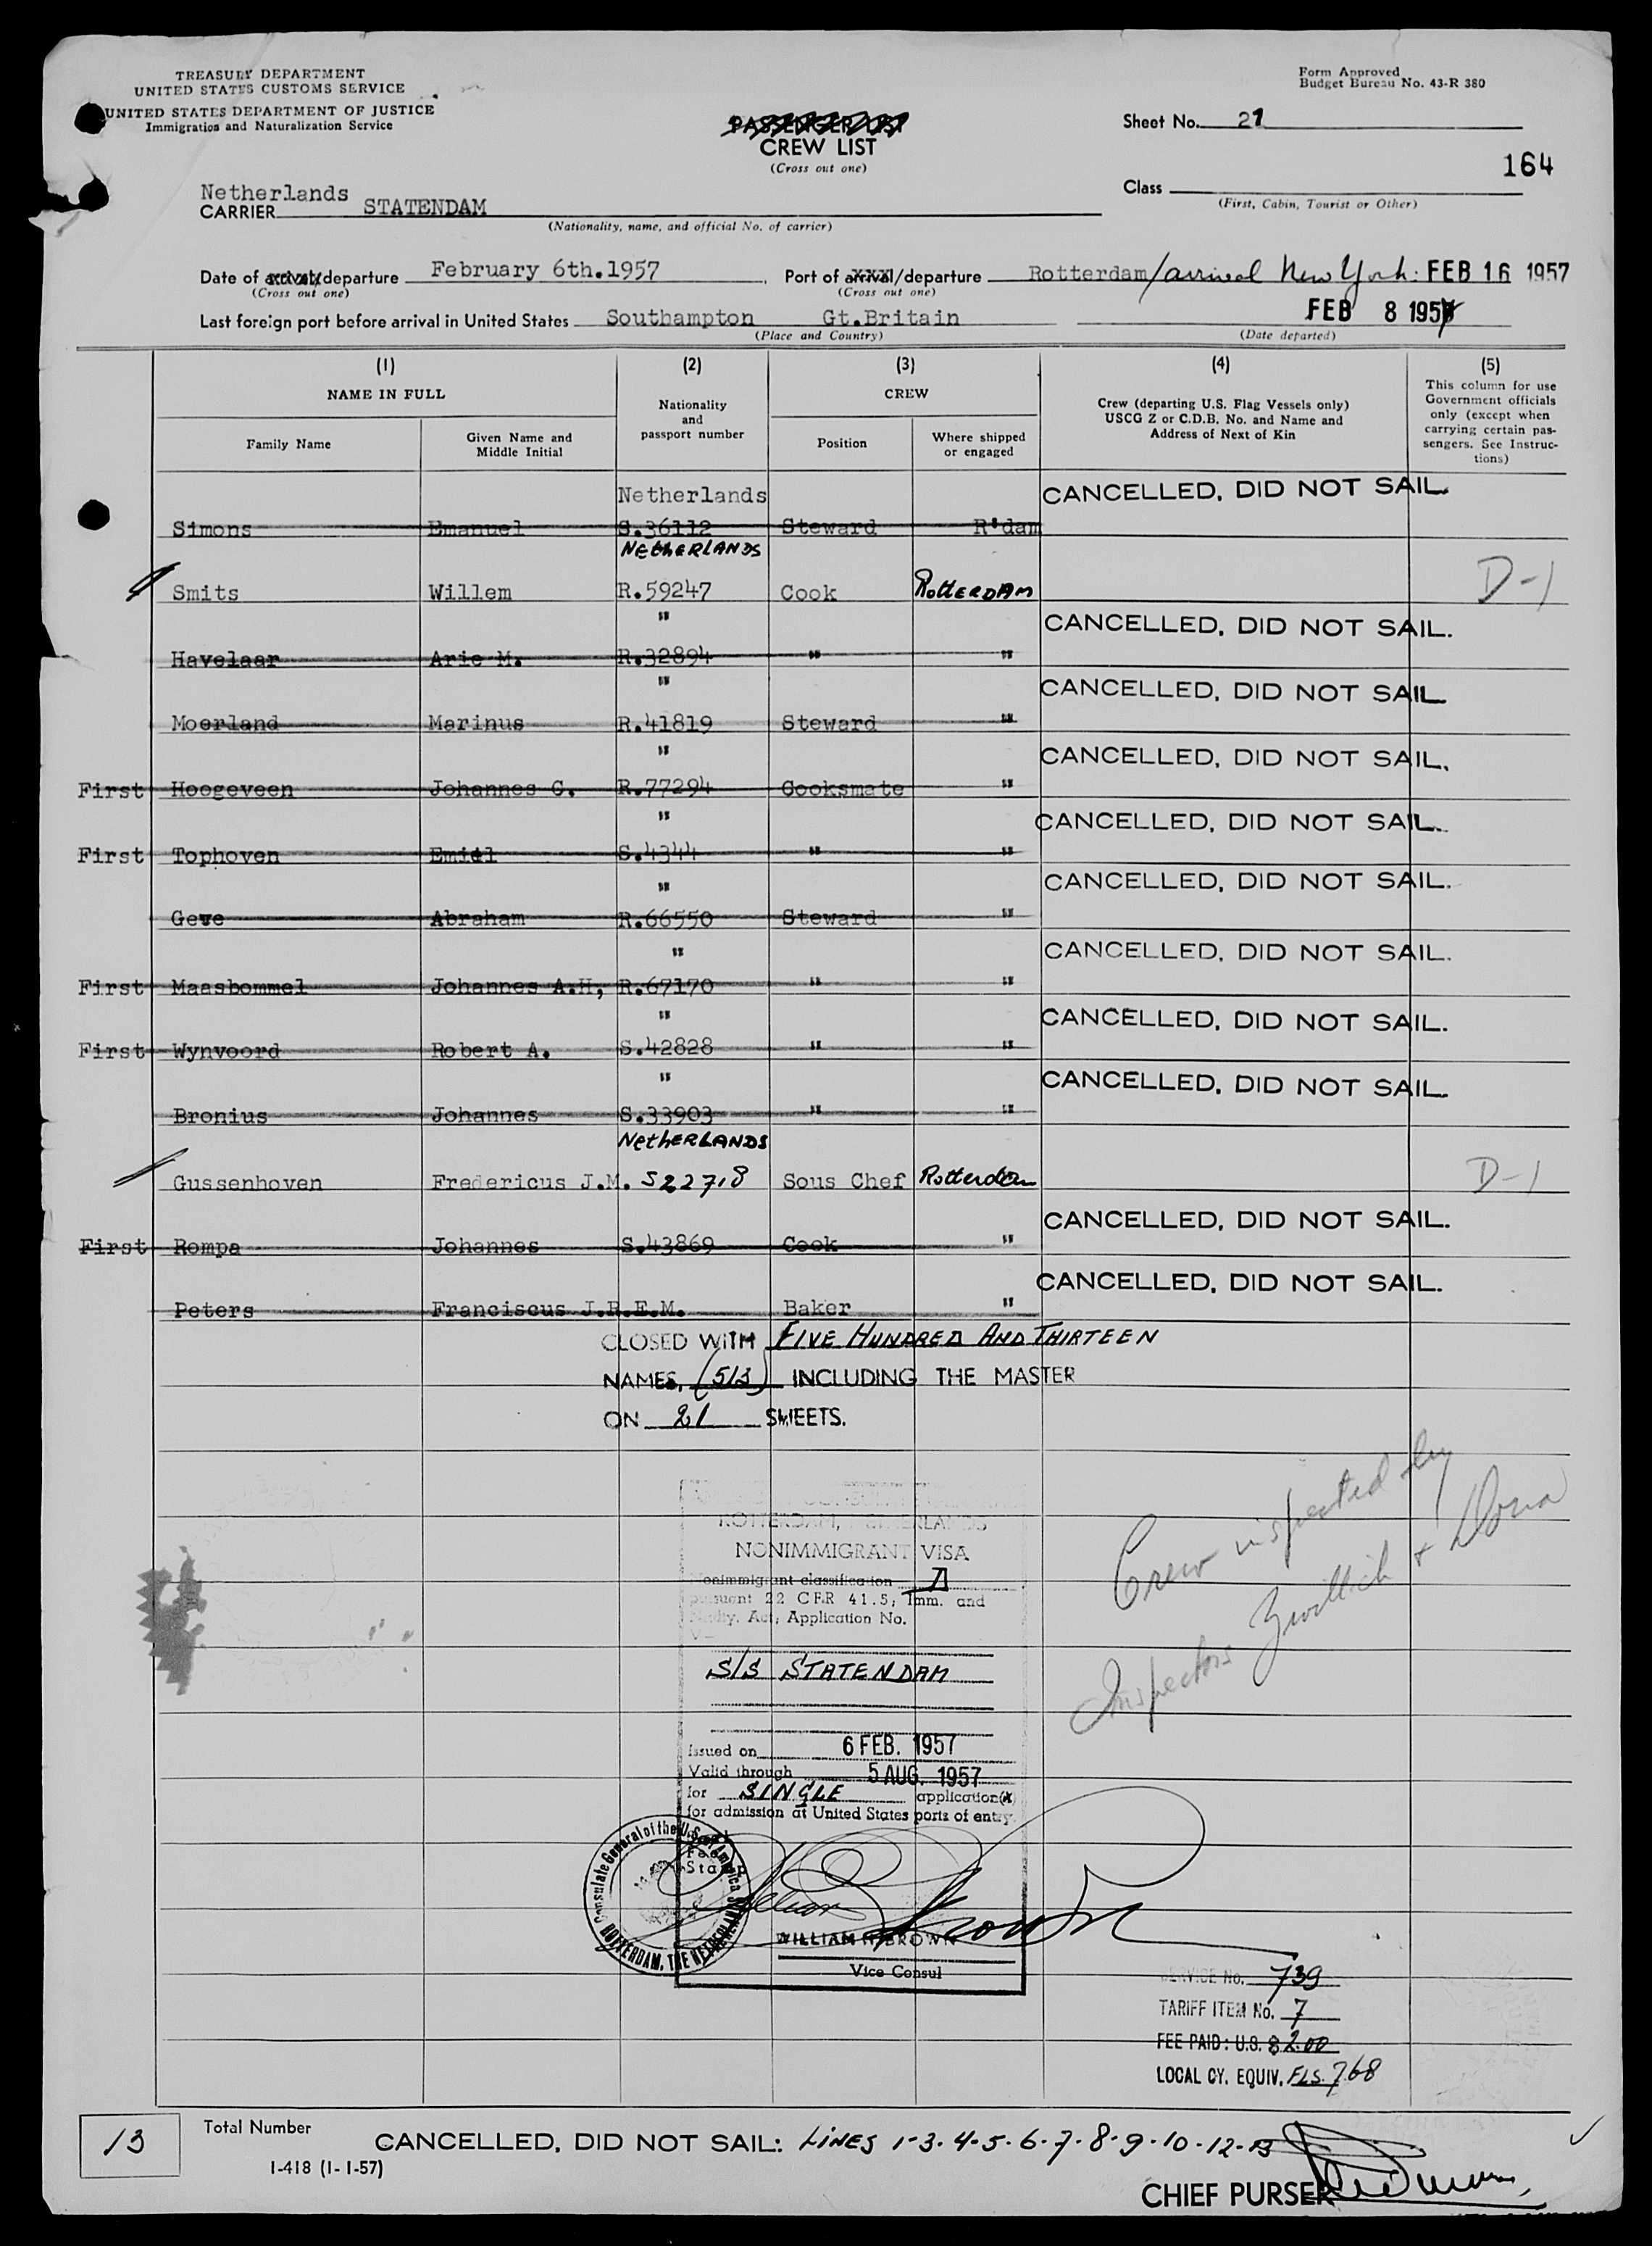 TREASURY DEPARTMENT
UNITED STATES CUSTOMS SERVICE
UNITED STATES DEPARTMENT OF JUSTICE
Immigration and Naturalization Service
Form Approved
Budget Bureau No. 43-R 380
PASSENGER LIST
CREW LIST
(Cross out one)
Sheet No. 21
164
Class
(First, Cabin, Tourist or Other)
Netherlands
CARRIER STATENDAM
(Nationality, name, and official No. of carrier)
Date of arrival/departure February 6th.1957 Port of arrival/departure Rotterdam/arrived New York: FEB 16 1957
(Cross out one) (Cross out one)
Last foreign port before arrival in United States Southampton Gt.Britain FEB 8 1957
(Place and Country) (Date departed)
(1) (2) (3) (4) (5)
NAME IN FULL
Family Name
Given Name and Middle Initial
Nationality and passport number
CREW
Position
Where shipped or engaged
Crew (departing U.S. Flag Vessels only)
USCG Z or C.D.B. No. and Name and
Address of Next of Kin
This column for use
Government officials
only (except when
carrying certain pas-
sengers. See Instruc-
tions)
Netherlands CANCELLED, DID NOT SAIL.
Simons Emanuel S.36112 Steward R'dam
NETHERLANDS
Smits Willem R.59247 Cook ROTTERDAM D-1
" CANCELLED, DID NOT SAIL.
Havelaar Arie M. R.32894 " "
" CANCELLED, DID NOT SAIL
Moerland Marinus R.41819 Steward "
" CANCELLED, DID NOT SAIL.
First Hoogeveen Johannes C. R.77294 Cooksmate "
" CANCELLED, DID NOT SAIL.
First Tophoven Emiel S.4344 " "
" CANCELLED, DID NOT SAIL.
Geve Abraham R.66550 Steward "
" CANCELLED, DID NOT SAIL.
First Maasbommel Johannes A.H, R.67170 " "
" CANCELLED, DID NOT SAIL.
First Wynvoord Robert A. S.42828 " "
" CANCELLED, DID NOT SAIL.
Bronius Johannes S.33903 " "
NETHERLANDS
Gussenhoven Fredericus J.M. S22718 Sous Chef Rotterdam D-1
CANCELLED, DID NOT SAIL.
First Rompa Johannes S.43869 Cook "
CANCELLED, DID NOT SAIL.
Peters Franciscus J.R.E.M. Baker "
CLOSED WITH FIVE HUNDRED AND THIRTEEN
NAMES, (513) INCLUDING THE MASTER
ON 21 SHEETS.
Crew inspected by
Inspectors Zwillich + Dona
ROTTERDAM, NETHERLANDS
NONIMMIGRANT VISA
Nonimmigrant classification D
pursuant 22 CFR 41.5, Imm. and
Natlty. Act, Application No.
V-
S/S STATENDAM
Issued on 6 FEB. 1957
Valid through 5 AUG. 1957
for SINGLE application(x)
for admission at United States ports of entry.
Consulate General of the U.S. of America
ROTTERDAM, THE NETHERLANDS
William Brown
WILLIAM H. BROWN
Vice Consul
SERVICE No. 739
TARIFF ITEM No. 7
FEE PAID: U.S. $ 2.00
LOCAL CY. EQUIV. FLS. 7.68
13
Total Number
CANCELLED, DID NOT SAIL: LINES 1-3-4-5-6-7-8-9-10-12-13
I-418 (1-1-57)
CHIEF PURSER